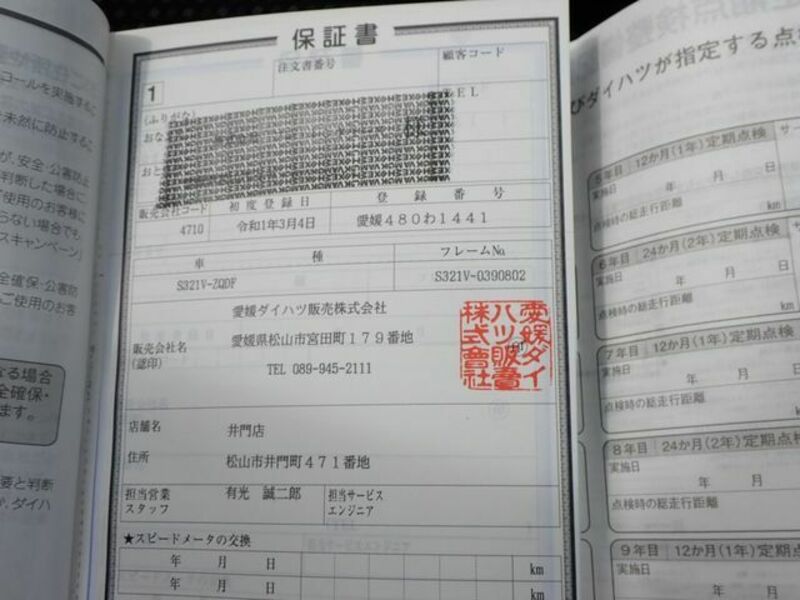 保証書
1
注文書番号
顧客コード
(ふりがな)
TEL
様
販売会社コード
初度登録日
登録番号
4710
令和1年3月4日
愛媛480わ1441
車種
フレームNo
S321V-ZQDF
S321V-0390802
愛媛ダイハツ販売株式会社
販売会社名
(認印)
愛媛県松山市宮田町179番地
TEL 089-945-2111
愛媛ダイ
ハツ販賣
株式會社
店舗名
井門店
住所
松山市井門町471番地
担当営業
スタッフ
有光 誠二郎
担当サービス
エンジニア
★スピードメータの交換
年 月 日
km
年 月 日
km
コールを実施する
未然に防止する
が、安全・公害防止
判断した場合に
使用のお客様に
らない場合でも
スキャンペーン」
全確保・公害防
ご使用のお客
なる場合
全確保・
ます。
要と判断
ダイハ
定期点検整備
びダイハツが指定する点
5年目 12か月(1年)定期点検
実施日
年 月
点検時の総走行距離
km
6年目 24か月(2年)定期点検
実施日
年 月
点検時の総走行距離
km
7年目 12か月(1年)定期点検
実施日
年 月 日
点検時の総走行距離
km
8年目 24か月(2年)定期点検
実施日
年 月 日
点検時の総走行距離
km
9年目 12か月(1年)定期点
実施日
年 月 日